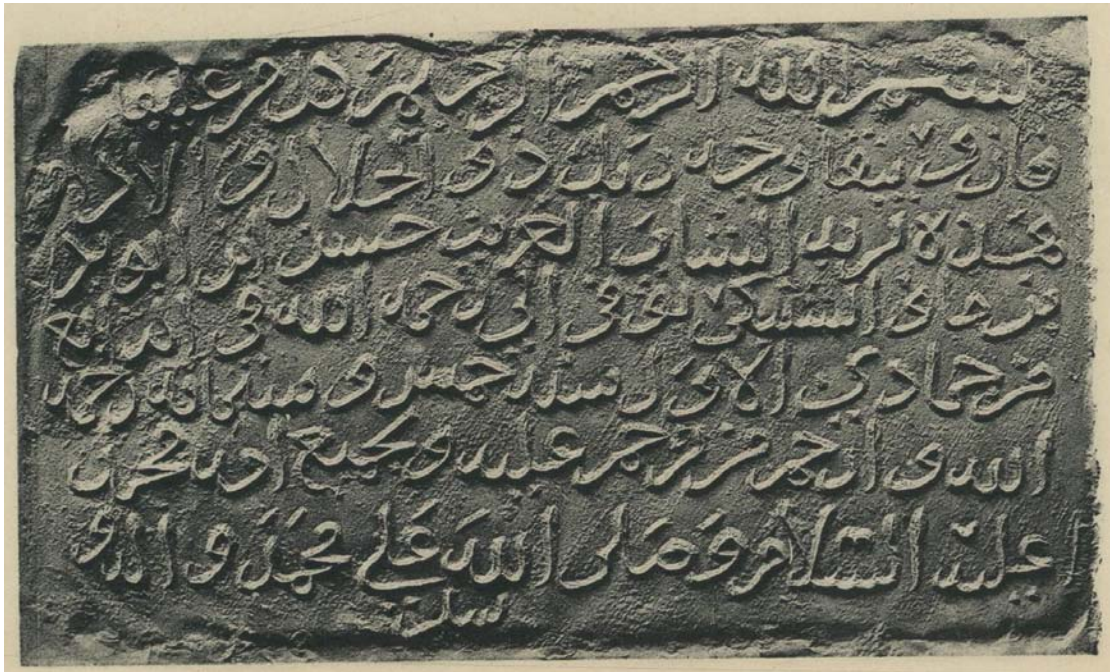 بسم الله الرحمن الرحيم كل من عليها
فان ويبقا وجه ربك ذو الجلال و الاكرام
هذه تربة الشاب الغريب حسن بن
توفى الى رحمة الله في
من جمادى الاول سنة خمس و ستمائة رحمه
الله و ارحم من ترحم عليه و بجميع امة محمد
عليه السلام و صلى الله على محمد و اله و
سلم